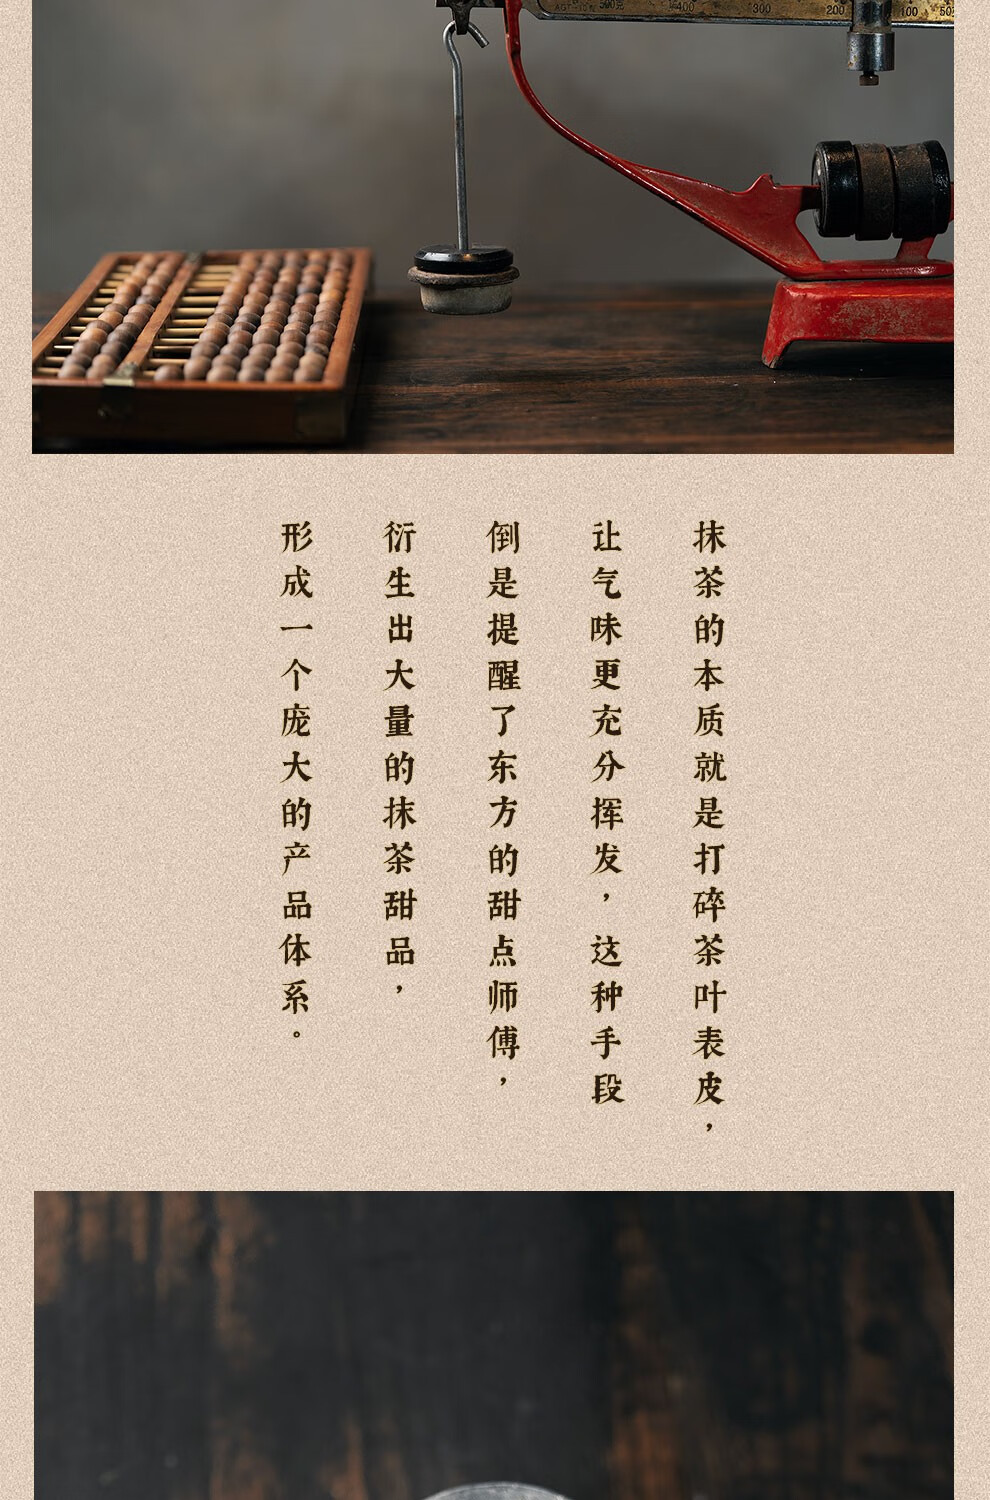 500克 400 300 200 100 50
抹茶的本质就是打碎茶叶表皮，
让气味更充分挥发，这种手段
倒是提醒了东方的甜点师傅，
衍生出大量的抹茶甜品，
形成一个庞大的产品体系。